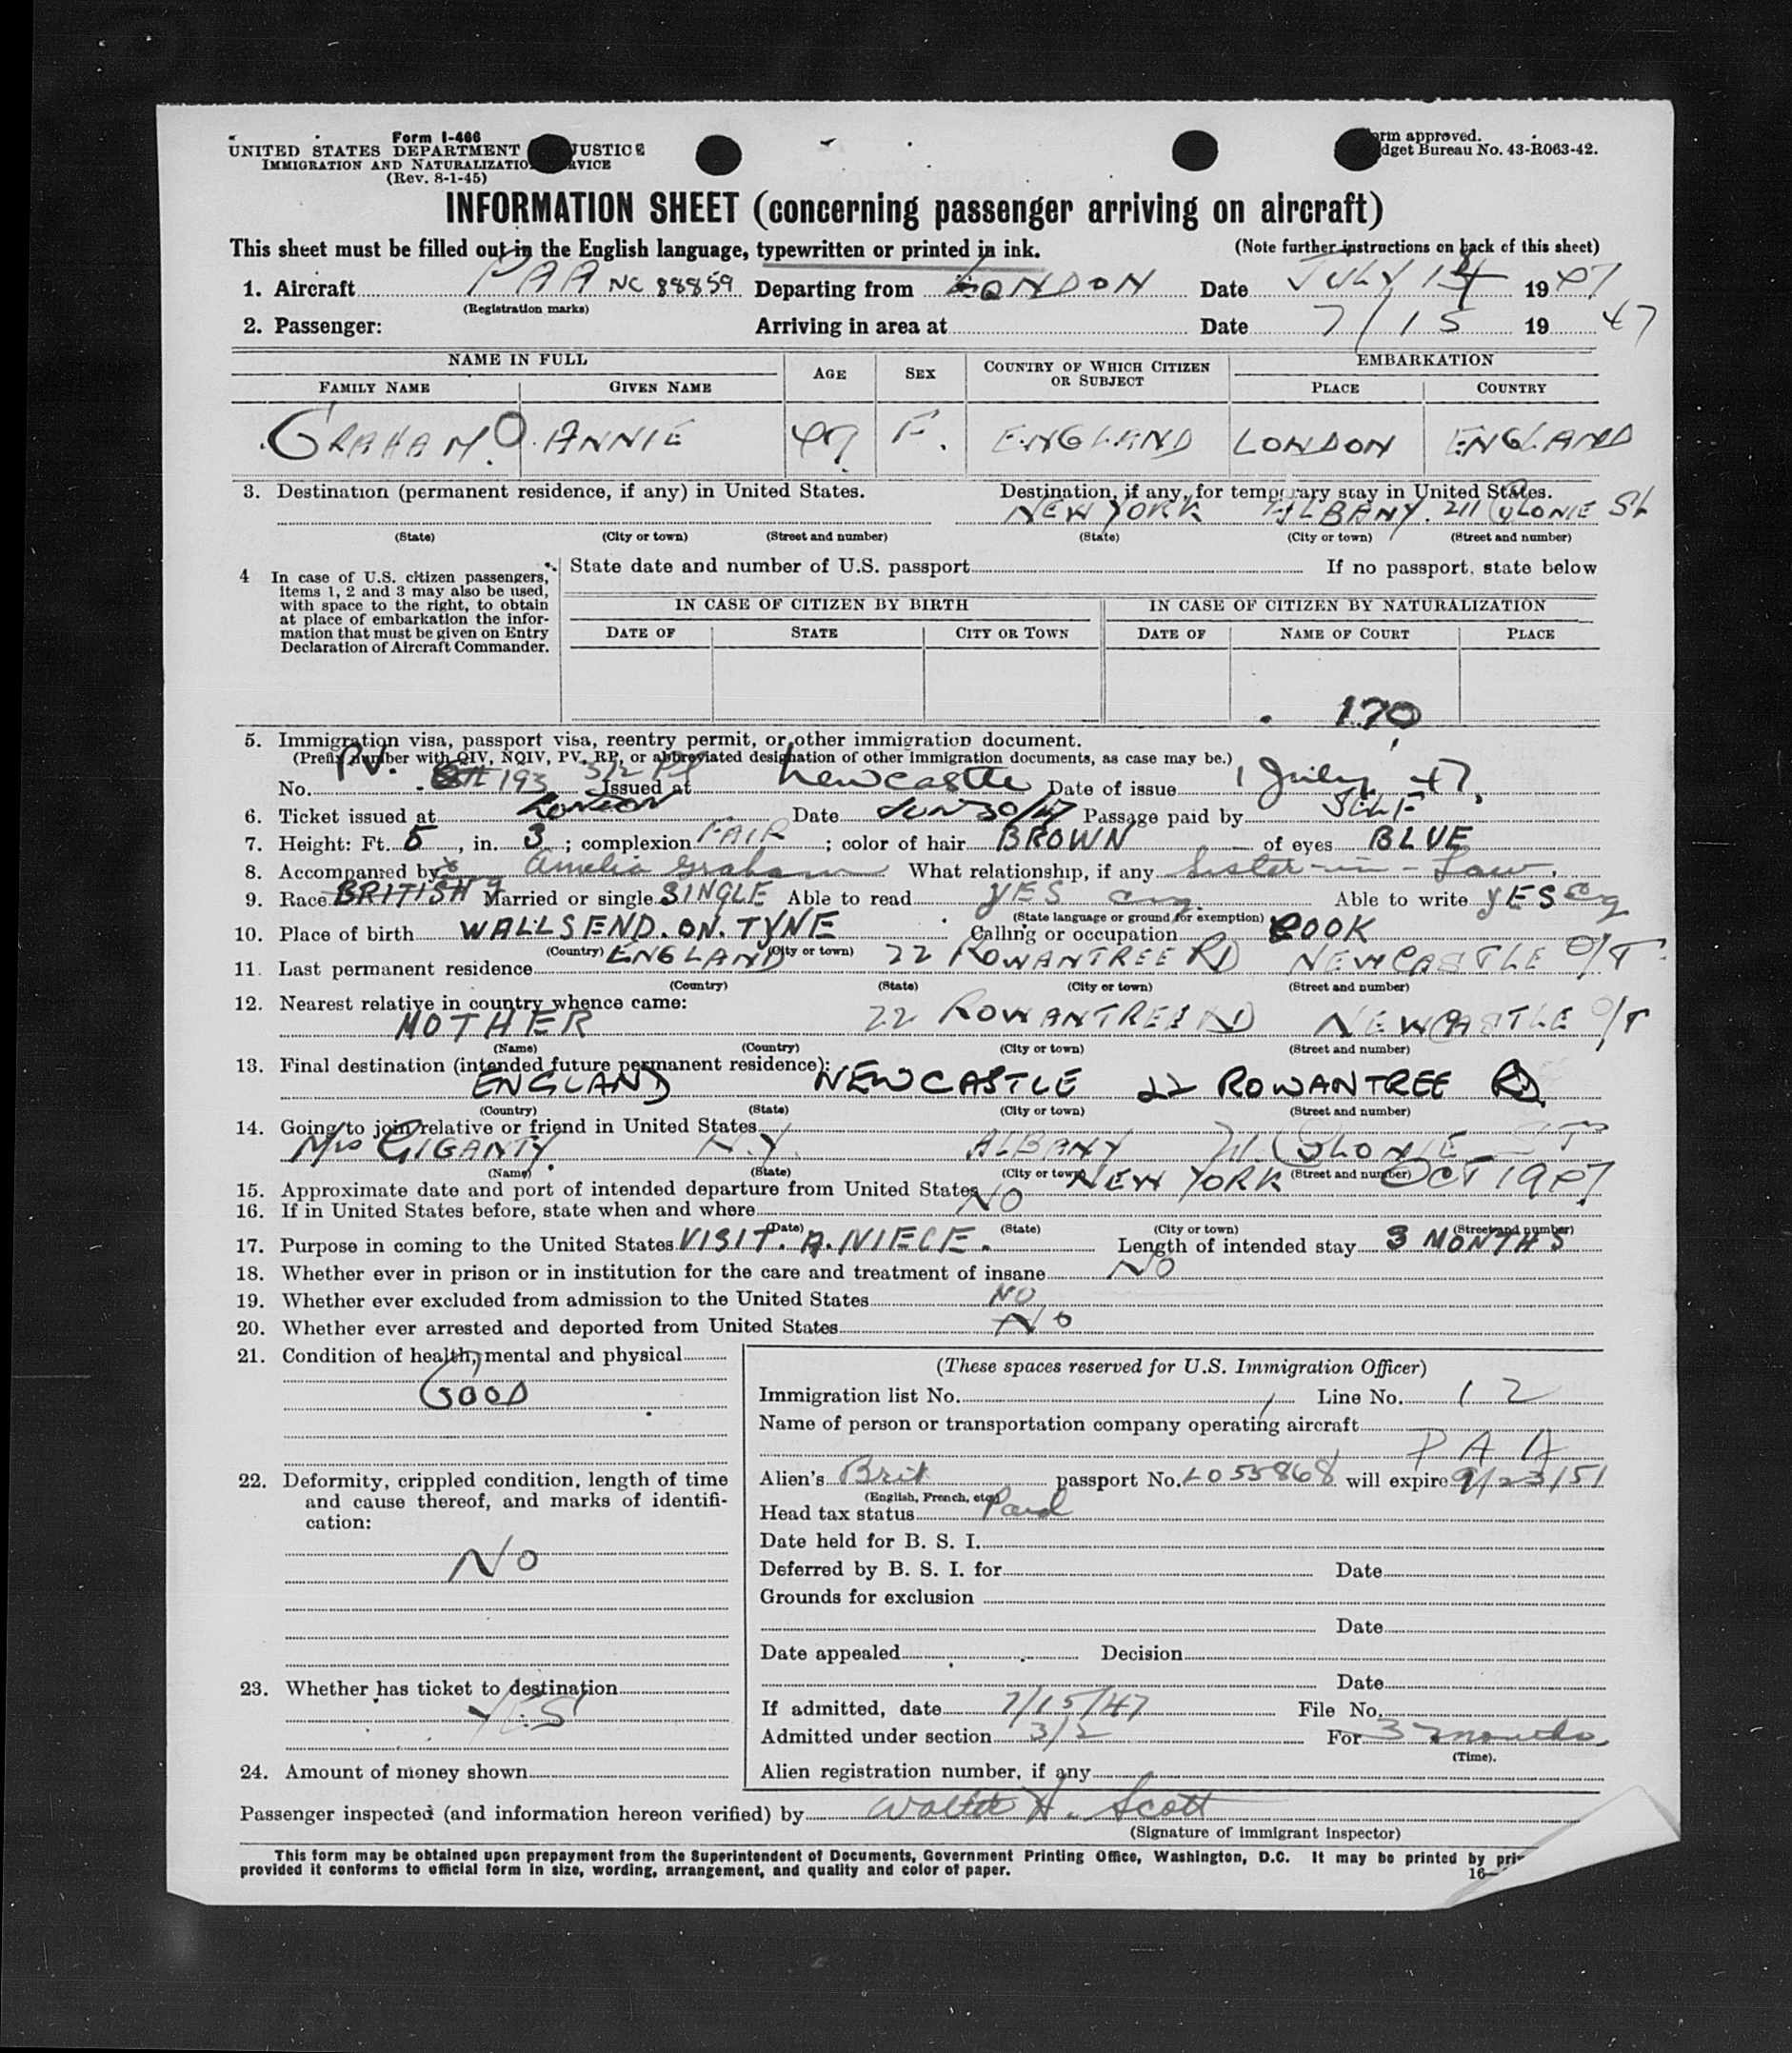 Form I-466
UNITED STATES DEPARTMENT JUSTICE
IMMIGRATION AND NATURALIZATIO RVICE
(Rev. 8-1-45)
orm approved.
dget Bureau No. 43-R063-42.
INFORMATION SHEET (concerning passenger arriving on aircraft)
This sheet must be filled out in the English language, typewritten or printed in ink. (Note further instructions on back of this sheet)
1. Aircraft PAA NC 88859 Departing from LONDON Date JULY 14 1947
(Registration marks)
2. Passenger: Arriving in area at Date 7/15 1947
NAME IN FULL AGE SEX COUNTRY OF WHICH CITIZEN OR SUBJECT EMBARKATION
FAMILY NAME GIVEN NAME PLACE COUNTRY
GRAHAM. ANNIE 47 F. ENGLAND LONDON ENGLAND
3. Destination (permanent residence, if any) in United States. Destination, if any, for temporary stay in United States.
NEW YORK ALBANY. 211 COLONIE St
(State) (City or town) (Street and number) (State) (City or town) (Street and number)
4 In case of U.S. citizen passengers, items 1, 2 and 3 may also be used, with space to the right, to obtain at place of embarkation the information that must be given on Entry Declaration of Aircraft Commander.
State date and number of U.S. passport If no passport, state below
IN CASE OF CITIZEN BY BIRTH IN CASE OF CITIZEN BY NATURALIZATION
DATE OF STATE CITY OR TOWN DATE OF NAME OF COURT PLACE
170
5. Immigration visa, passport visa, reentry permit, or other immigration document.
(Prefix number with QIV, NQIV, PV, RP, or abbreviated designation of other immigration documents, as case may be.)
No. PV. 193 3/2 Issued at Newcastle Date of issue 1 July 47.
6. Ticket issued at London Date JUN 30/47 Passage paid by SELF
7. Height: Ft. 5, in. 3; complexion FAIR; color of hair BROWN of eyes BLUE
8. Accompanied by Amelia Graham What relationship, if any Sister-in-Law.
9. Race BRITISH Married or single SINGLE Able to read YES Eng. Able to write YES Eng
(State language or ground for exemption)
10. Place of birth WALLSEND. ON. TYNE Calling or occupation COOK
(Country) (City or town)
11. Last permanent residence ENGLAND 22 ROWANTREE RD NEWCASTLE O/T
(Country) (State) (City or town) (Street and number)
12. Nearest relative in country whence came:
MOTHER 22 ROWANTREE RD NEWCASTLE O/T
(Name) (Country) (City or town) (Street and number)
13. Final destination (intended future permanent residence):
ENGLAND NEWCASTLE 22 ROWANTREE RD
(Country) (State) (City or town) (Street and number)
14. Going to join relative or friend in United States
Mrs GIGANTY N.Y. ALBANY 211 COLONIE ST
(Name) (State) (City or town) (Street and number)
15. Approximate date and port of intended departure from United States NEW YORK OCT 1947
16. If in United States before, state when and where NO
(Date) (State) (City or town) (Street and number)
17. Purpose in coming to the United States VISIT. A. NIECE. Length of intended stay 3 MONTHS
18. Whether ever in prison or in institution for the care and treatment of insane NO
19. Whether ever excluded from admission to the United States NO
20. Whether ever arrested and deported from United States No
21. Condition of health, mental and physical
GOOD
22. Deformity, crippled condition, length of time
and cause thereof, and marks of identifi-
cation:
No
23. Whether has ticket to destination
YES
24. Amount of money shown
(These spaces reserved for U.S. Immigration Officer)
Immigration list No. 1 Line No. 12
Name of person or transportation company operating aircraft
PAA
Alien's Brit passport No. L055868 will expire 9/23/51
(English, French, etc.)
Head tax status Paid
Date held for B. S. I.
Deferred by B. S. I. for Date
Grounds for exclusion
Date
Date appealed Decision
Date
If admitted, date 7/15/47 File No.
Admitted under section 3/2 For 3 months
(Time).
Alien registration number, if any
Passenger inspected (and information hereon verified) by Walter H. Scott
(Signature of immigrant inspector)
This form may be obtained upon prepayment from the Superintendent of Documents, Government Printing Office, Washington, D.C. It may be printed by priv
provided it conforms to official form in size, wording, arrangement, and quality and color of paper. 16—